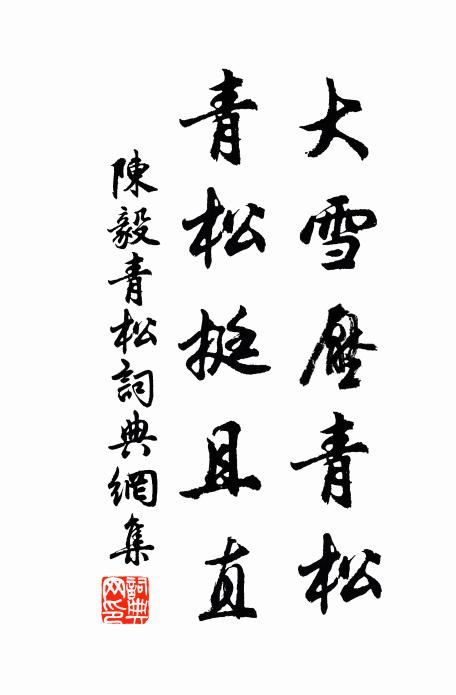 大雪壓青松
青松挺且直
陳毅青松詞典網集
詞典网印